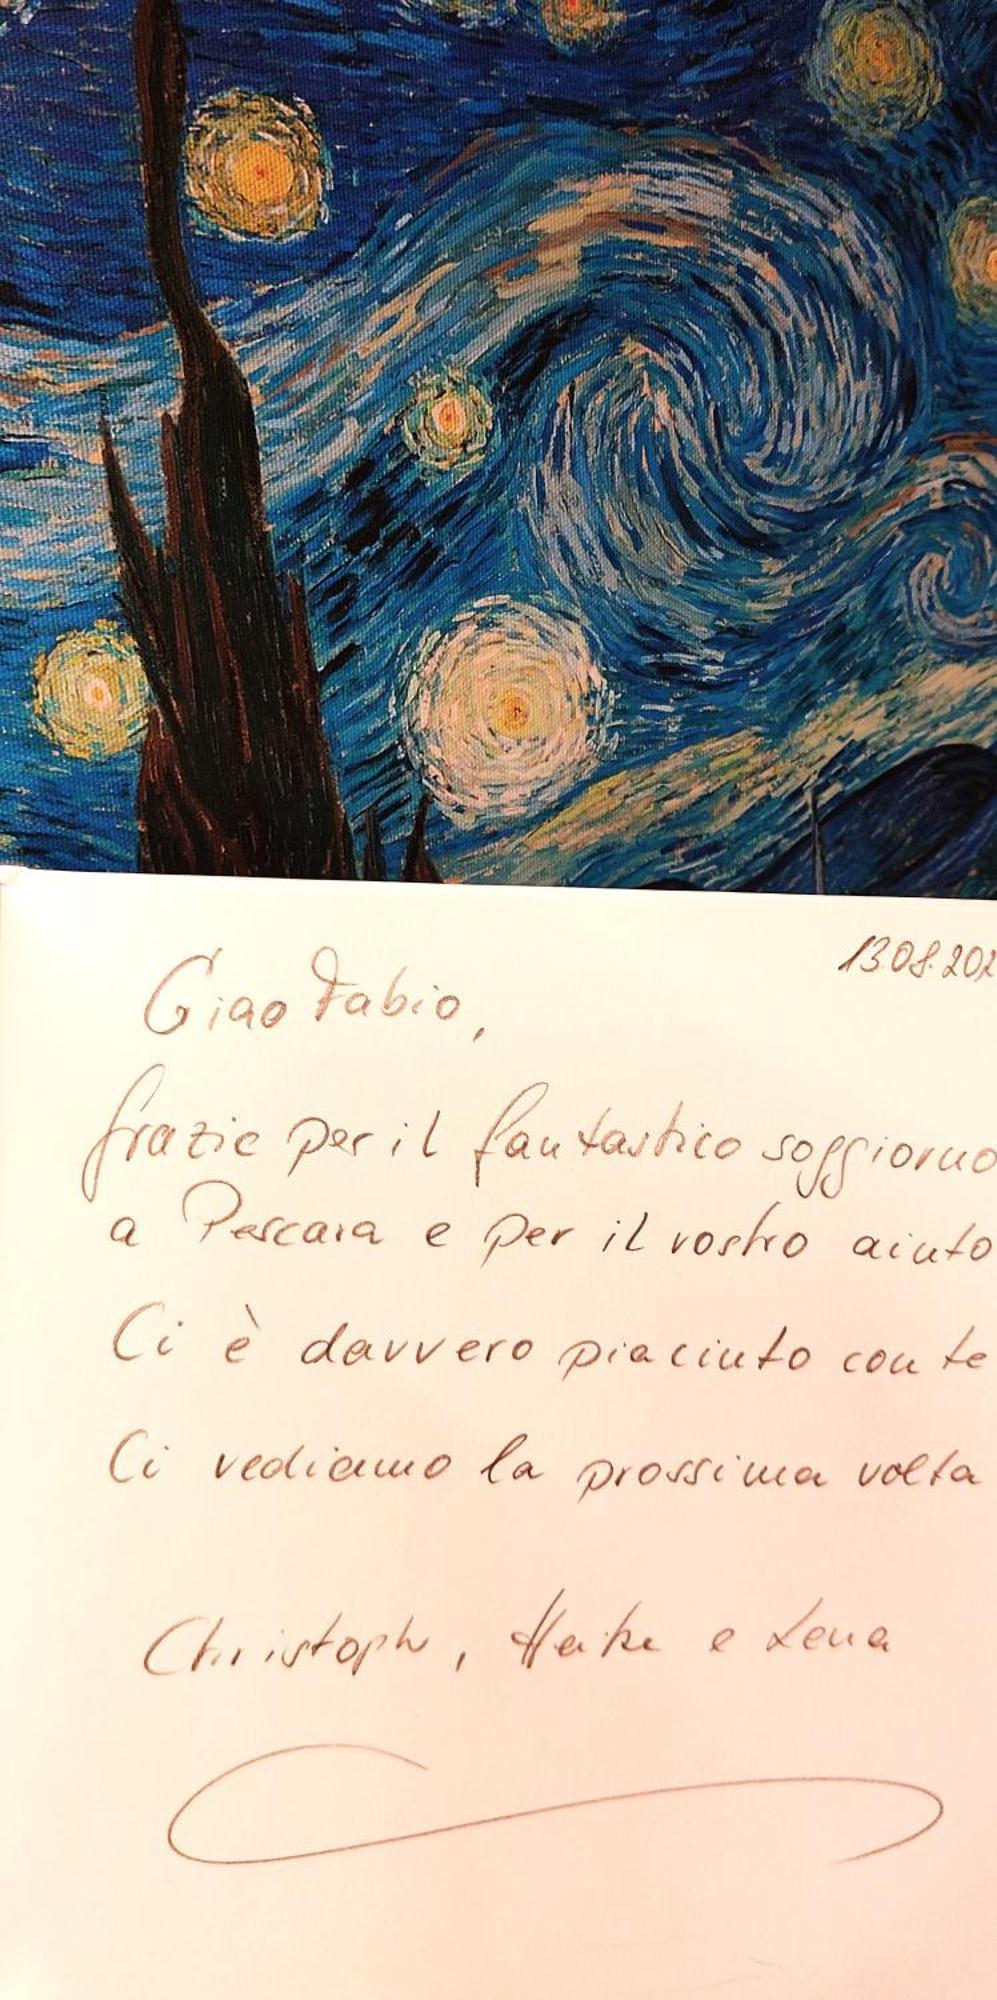 13.08.202
Ciao Fabio,
grazie per il fantastico soggiorno
a Pescara e per il vostro aiuto
Ci è davvero piaciuto con te
Ci vediamo la prossima volta
Christoph, Heike e Lena